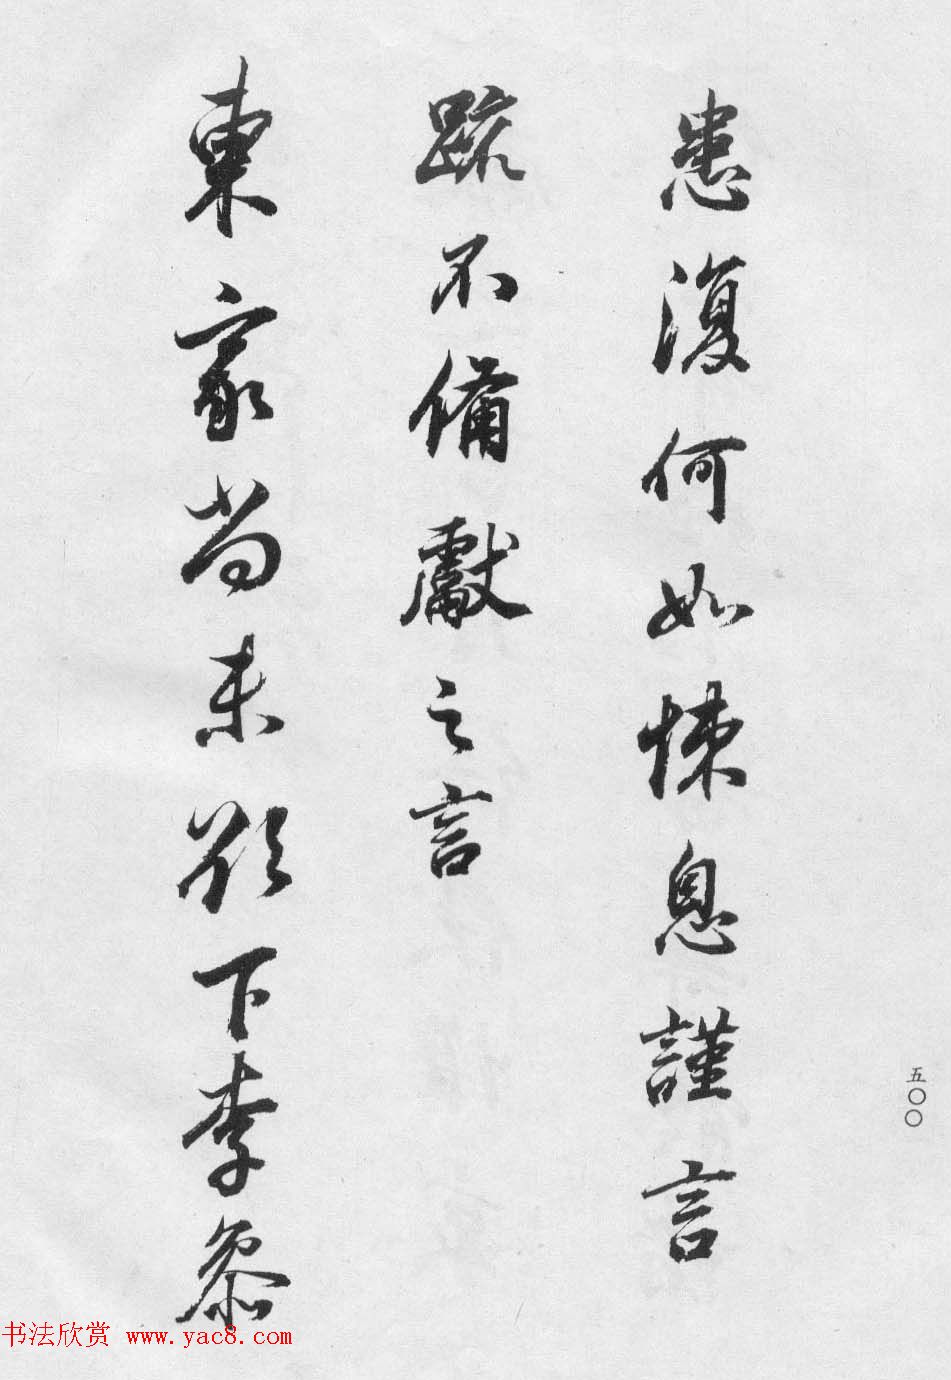 患復何如悚息謹言
䟽不備獻之言
東家尚未欲下李參
五〇〇
书法欣赏 www.yac8.com